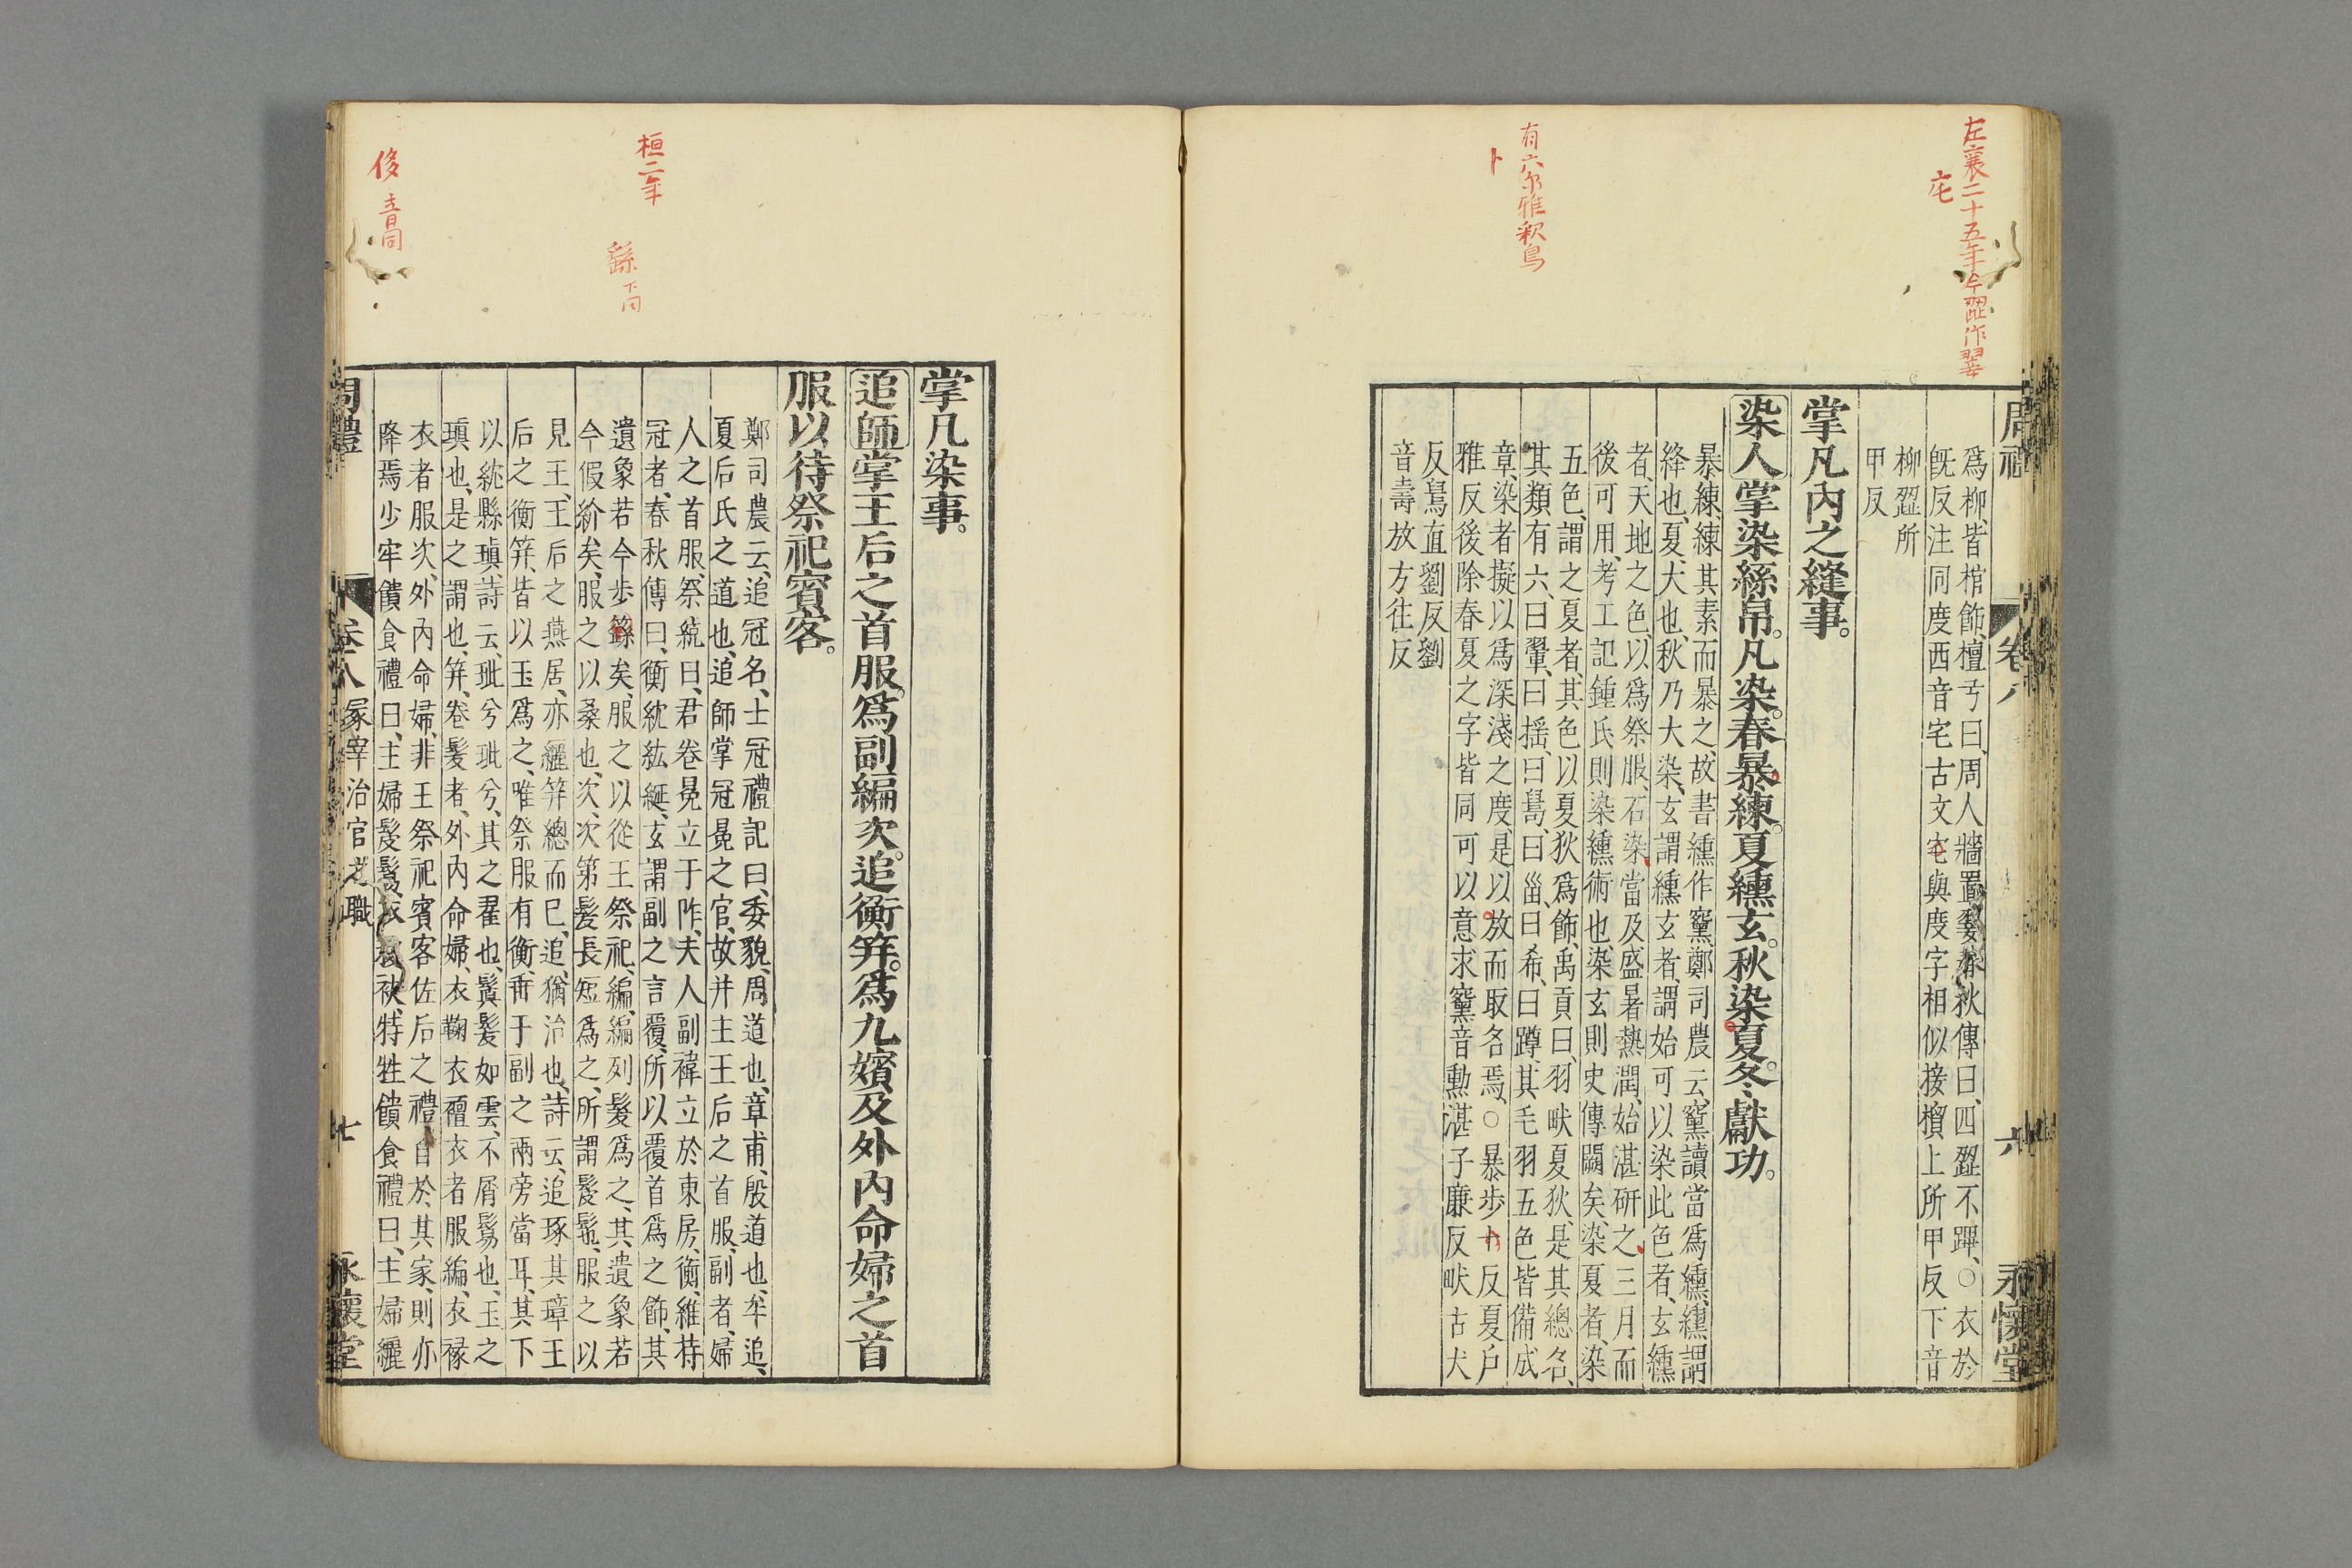 左襄二十五年今歰作翣
宅
有六尔雅釈鳥
卜
周禮
卷八
六
永懷堂
爲柳皆棺飾檀弓曰周人牆置翣春秋傳曰四歰不蹕○衣於
旣反注同度西音宅古文宅與度字相似接檟上所甲反下音
柳歰所
甲反
掌凡內之縫事。
染人掌染絲帛。凡染。春暴練。夏纁玄。秋染夏。冬獻功。
暴練練其素而暴之故書纁作䵫鄭司農云䵫讀當爲纁纁謂
絳也夏大也秋乃大染玄謂纁玄者謂始可以染此色者玄纁
者天地之色以爲祭服石染當及盛暑熱潤始湛研之三月而
後可用考工記鍾氏則染纁術也染玄則史傳闕矣染夏者染
五色謂之夏者其色以夏狄爲飾禹貢曰羽畎夏狄是其總名
其類有六曰翬曰搖曰䍺曰甾曰希曰蹲其毛羽五色皆備成
章染者擬以爲深淺之度是以放而取名焉○暴步卜反夏戶
雅反後除春夏之字皆同可以意求䵫音勳湛子廉反畎古犬
反䍺直劉反劉
音壽放方往反
掌凡染事。
追師掌王后之首服。爲副編次。追衡笄。爲九嬪及外內命婦之首
服以待祭祀賓客。
鄭司農云追冠名士冠禮記曰委貌周道也章甫殷道也牟追
夏后氏之道也追師掌冠冕之官故幷主王后之首服副者婦
人之首服祭統曰君卷冕立于阼夫人副褘立於東房衡維持
冠者春秋傳曰衡紞紘綖玄謂副之言覆所以覆首爲之飾其
遺象若今步繇矣服之以從王祭祀編編列髮爲之其遺象若
今假紒矣服之以桑也次次第髮長短爲之所謂髲髢服之以
見王王后之燕居亦纚笄總而巳追猶治也詩云追琢其璋王
后之衡笄皆以玉爲之唯祭服有衡垂于副之兩旁當耳其下
以紞縣瑱詩云玼兮玼兮其之翟也鬒髮如雲不屑鬄也玉之
瑱也是之謂也笄卷髮者外內命婦衣鞠衣襢衣者服編衣褖
衣者服次外內命婦非王祭祀賓客佐后之禮自於其家則亦
降焉少牢饋食禮曰主婦髲鬄衣袂特牲饋食禮曰主婦纚
周禮
卷八
冢宰治官之職
七
永懷堂
桓二年
繇下同
侈音同